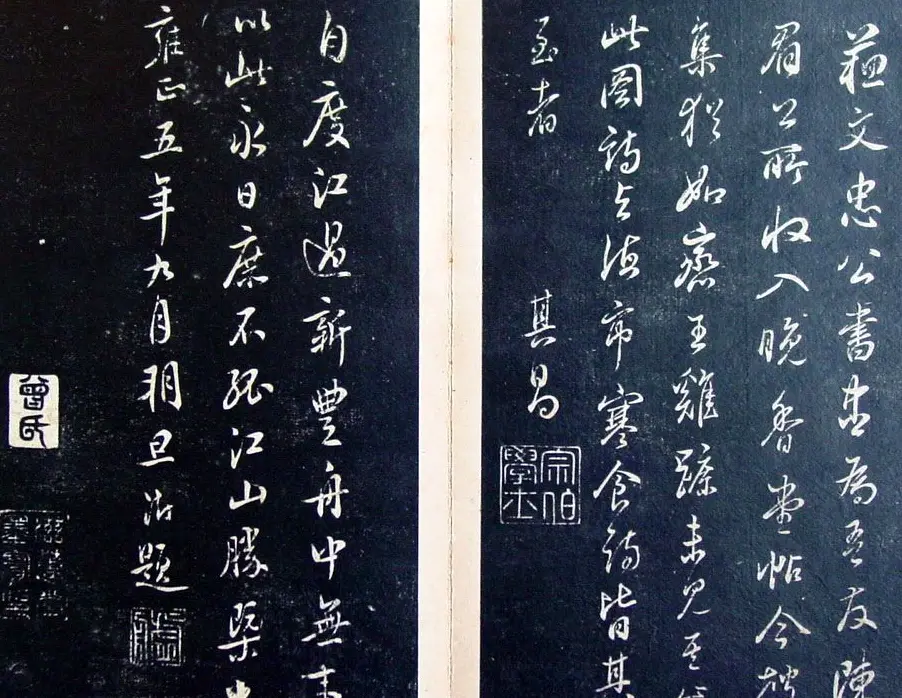 蘇文忠公書者為吾友陳
眉公所收入晚香堂帖今
集猶如齋王雞蹠未見其
此圖詩與海市寒食詩皆其
至者
其昌
宗伯學士
自度江過新豐舟中無
以此永日庶不孤江山勝
雍正五年九月朔旦 題
曾氏